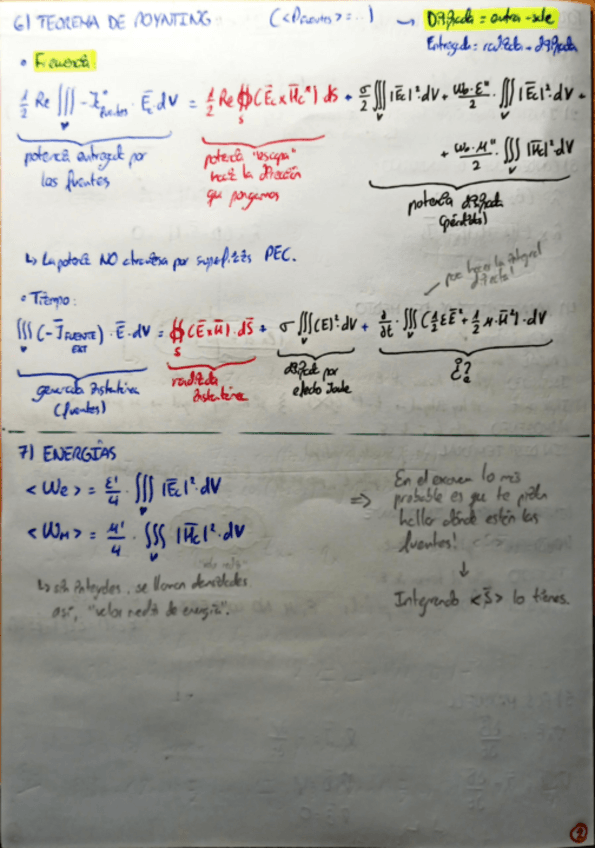 6) TEOREMA DE POYNTING (<Pfuentes> = ...) → Disipada = entra - sale
Entregada = radiada + disipada
• Frecuencia:
1/2 Re ∭_V -J_c*fuentes · E̅_c · dV = 1/2 Re ∯_S (E̅_c x H̅_c*) dS + σ/2 ∭_V |E̅c|² · dV + ω₀·ε''/2 · ∭_V |E̅c|² · dV +
+ ω₀·μ''/2 · ∭_V |H̅c|² · dV
potencia entregada por
las fuentes
potencia "escapa"
hacia la dirección
que pongamos
potencia disipada
(pérdidas)
↳ La potencia NO atraviesa por superficies PEC.
• Tiempo:
∭_V (-J̅_FUENTE EXT) · E̅ · dV = ∯_S (E̅ x H̅) · dS̅ + σ ∭_V (E)² · dV + ∂/∂t · ∭_V (1/2 ε E̅² + 1/2 μ · H̅²) · dV
generada instantánea
(fuentes)
radiada
instantánea
disipada por
efecto Joule
7) ENERGÍAS
<We> = ε'/4 · ∭_V |E̅c|² · dV
<W_M> = μ'/4 · ∭_V |H̅c|² · dV
↳ sin integrales, se llaman densidades
así, "valor medio de energía".
⇒ En el examen lo más
probable es que te pidan
hallar dónde están las
fuentes!
↓
Integrando <S̅> lo tienes.
2